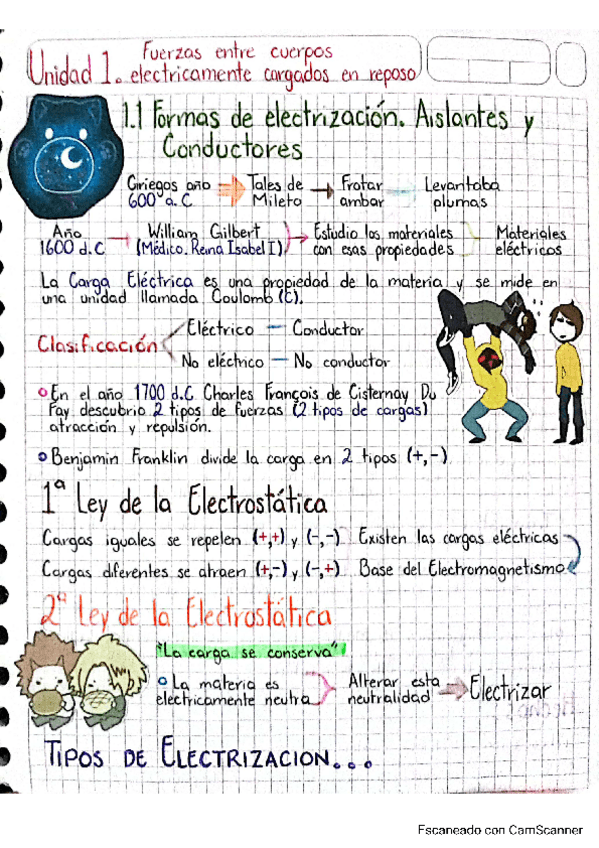 Unidad 1. Fuerzas entre cuerpos
electricamente cargados en reposo
1.1 Formas de electrización. Aislantes y
Conductores
Griegos año 600 a.C Tales de Mileto Frotar ambar Levantaba plumas
Año 1600 d.C William Gilbert (Médico. Reina Isabel I) Estudio los materiales con esas propiedades Materiales eléctricos
La Carga Eléctrica es una propiedad de la materia y se mide en
una unidad llamada Coulomb (C).
Clasificación
Eléctrico — Conductor
No eléctrico — No conductor
En el año 1700 d.C Charles François de Cisternay Du
Fay descubrio 2 tipos de fuerzas (2 tipos de cargas)
atracción y repulsión.
Benjamin Franklin divide la carga en 2 tipos (+,-)
1ª Ley de la Electrostática
Cargas iguales se repelen (+,+) y (-,-) Existen las cargas eléctricas
Cargas diferentes se atraen (+,-) y (-,+) Base del Electromagnetismo
2ª Ley de la Electrostática
"La carga se conserva"
La materia es electricamente neutra Alterar esta neutralidad Electrizar
TIPOS DE ELECTRIZACION...
Escaneado con CamScanner